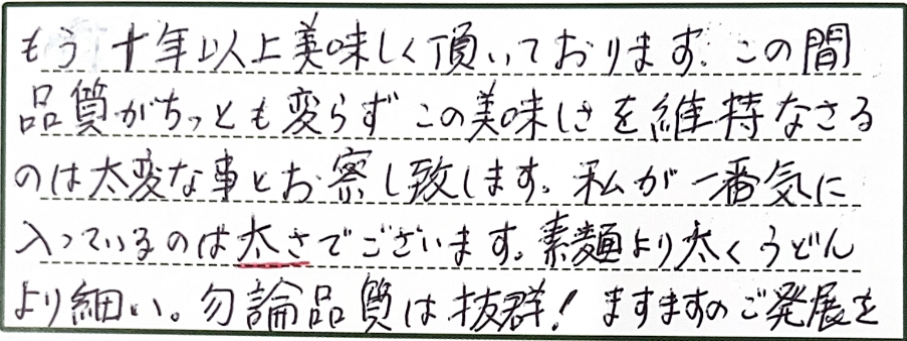 もう十年以上美味しく頂いております。この間
品質がちっとも変らずこの美味しさを維持なさる
のは大変な事とお察し致します。私が一番気に
入っているのは太さでございます。素麺より太くうどん
より細い。勿論品質は抜群！ますますのご発展を